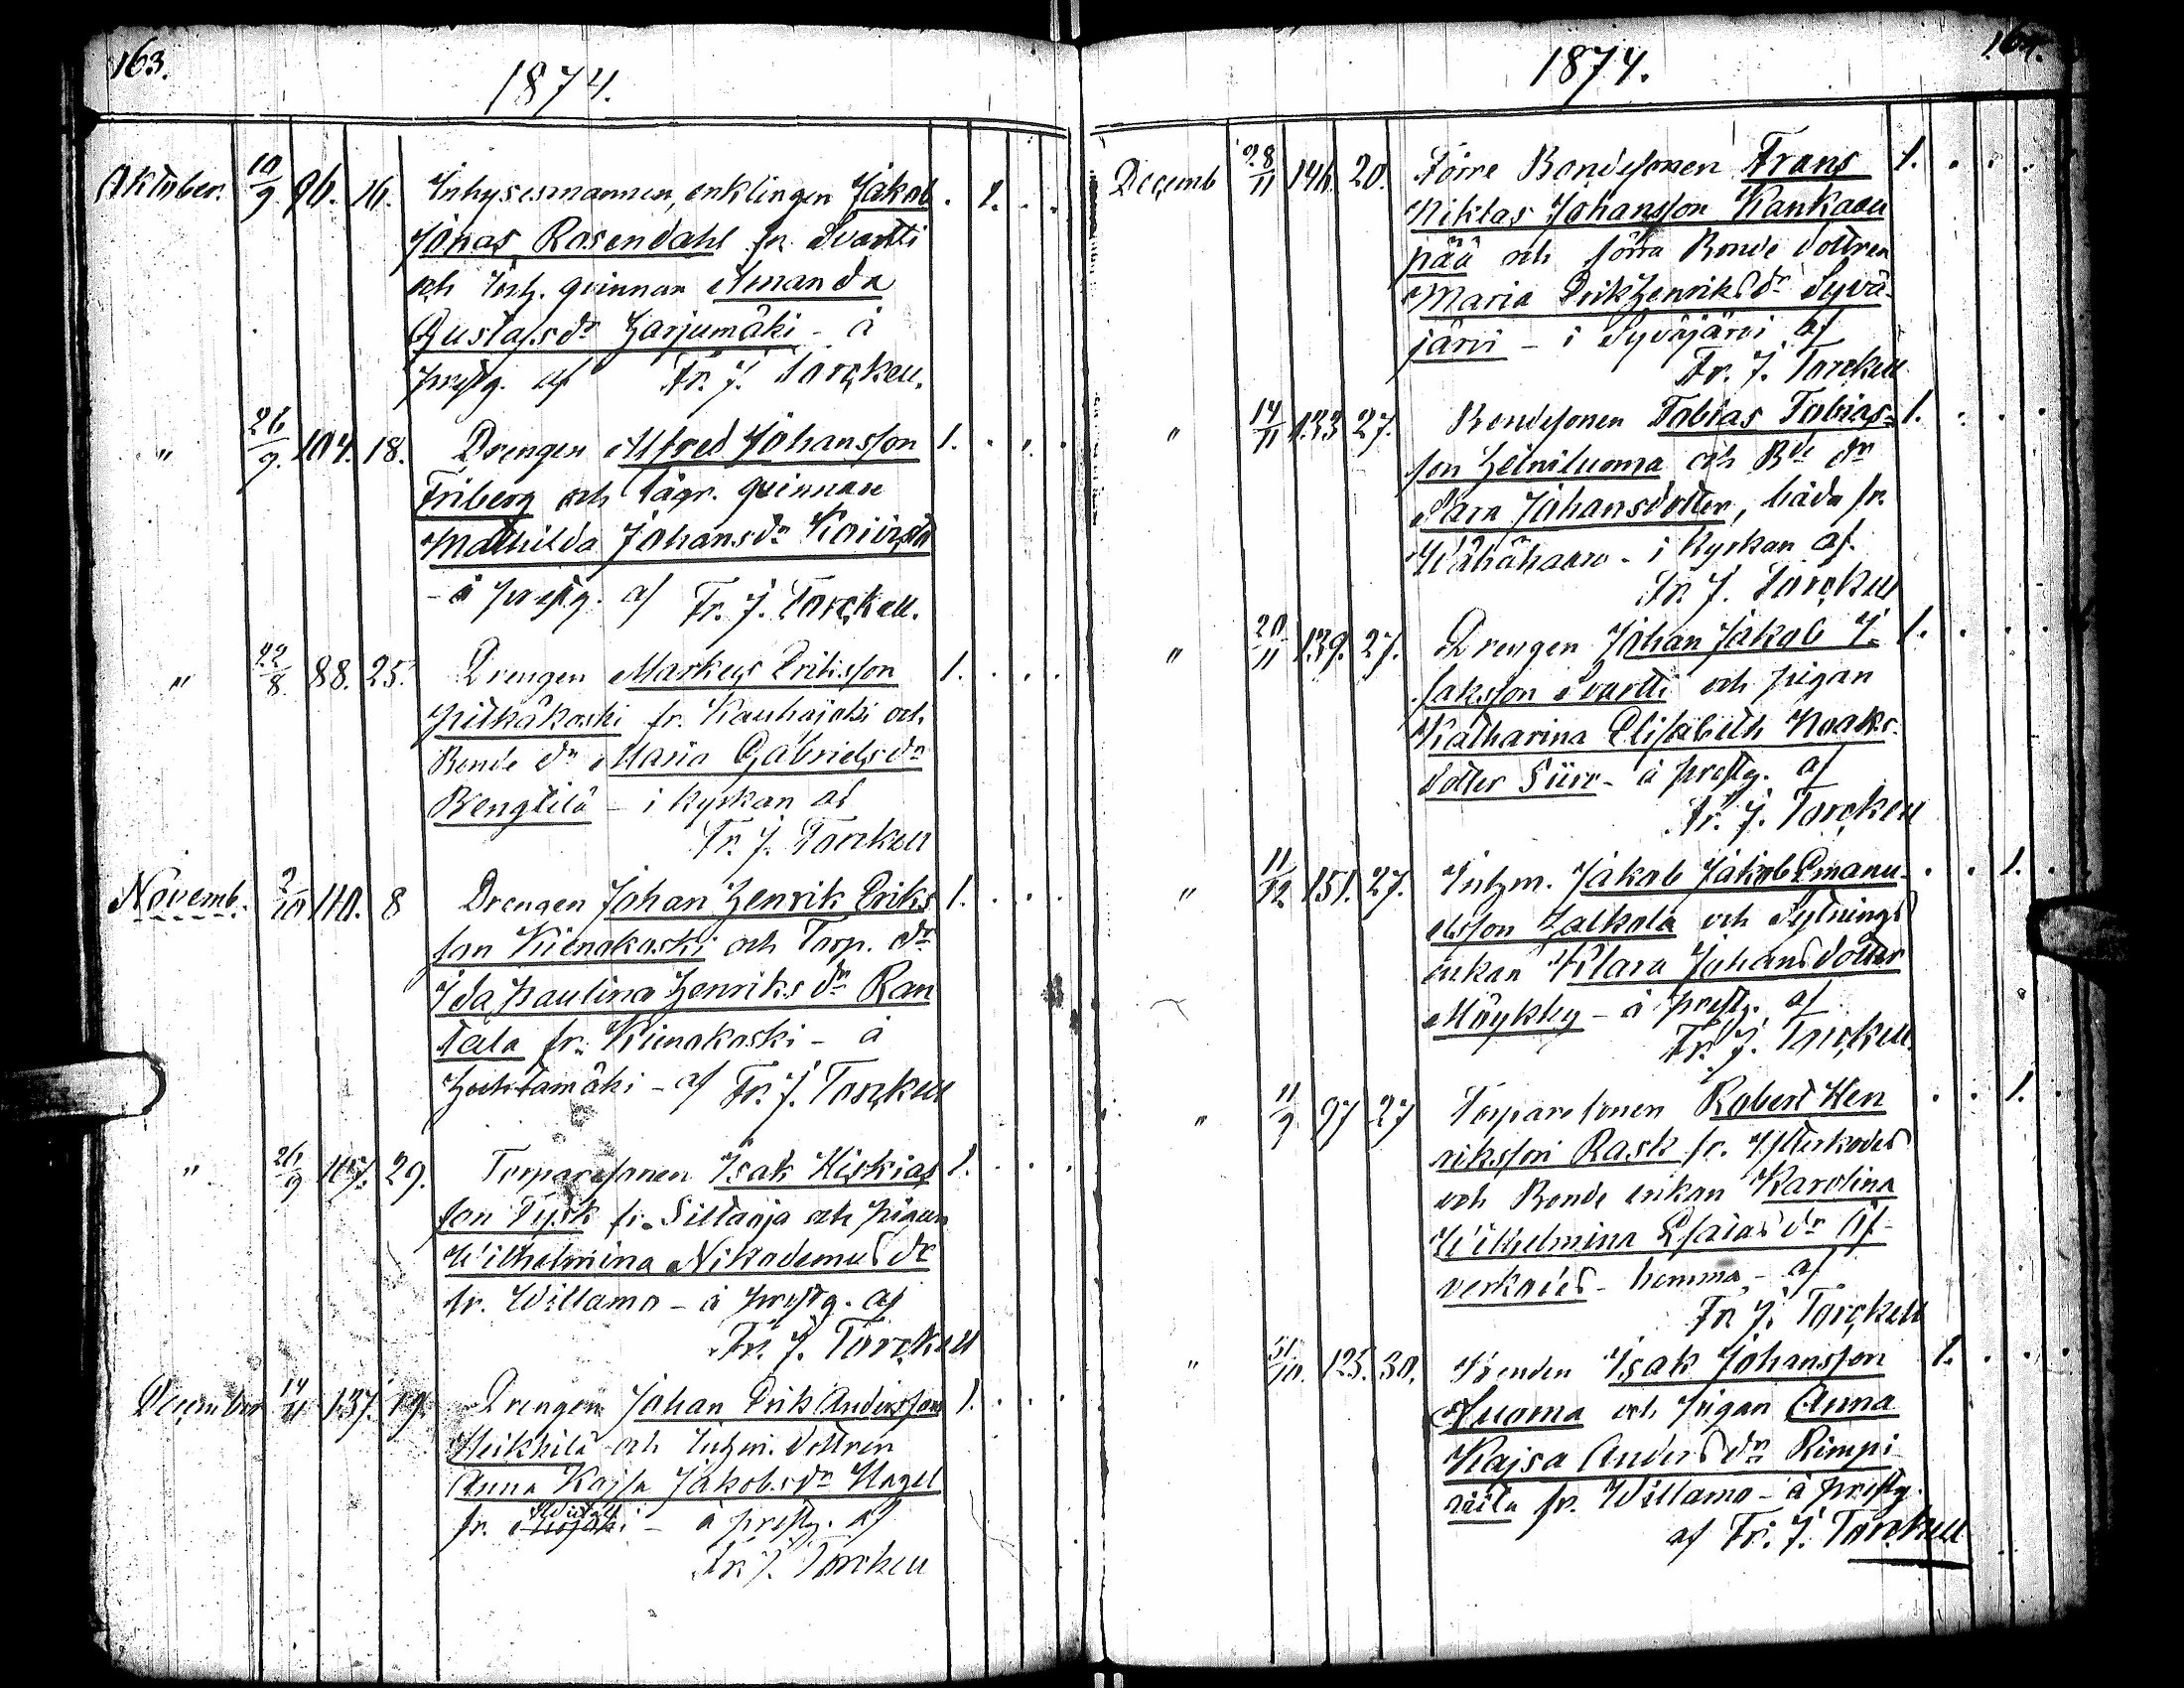 163.
1874.
Oktober. 10/9 96. 16. Inhysesmannen, enklingen Jakob . 1. . .
Jonas Rosendahl fr. Svartti
och Inh. qvinnan Amanda
Gustafsdr Harjumäki - å
prestg. af Fr. J. Torckell.
" 26/9. 104. 18. Drengen Alfred Johansson 1. . . .
Friberg och lägr. qvinnan
Mathilda Johansdr
- å prestg. af Fr. J. Torckell.
" 22/8. 88. 25. Drengen Markus Eriksson 1. . . .
Pitkäkoski fr. Kauhajoki och
Bonde dr Maria Gabrielsdr
Bengtilä - i kyrkan af
Fr. J. Torckell
Novemb. 2/10 110. 8 Drengen Johan Henrik Eriks 1. . . .
son Kienokoski och Torp. dr
Ida Paulina Henriksdr Ran
tala fr. Kienokoski - å
Huhtamäki - af Fr. J. Torckell
" 26/9 29. Torparesonen Isak Hiskias 1. . . .
son Tysk fr. Siltanja och pigan
Wilhelmina Nikodemusdr
fr. Willamo - å prestg. af
Fr. J. Torckell
December 14/11 137. 19. Drengen Johan Erik Andersson 1. . . .
Heikkilä och Inhm. dottren
Anna Kajsa Jakobsdr Hagel
fr. - å prestg. af
Fr. J. Torckell
164.
1874.
Decemb 28/11 146. 20. Förre Bondesonen Frans 1. . . .
Niklas Johansson Kankaan
pää och förra Bonde dottren
Maria Erik Henriksdr Syvä-
järvi - i Syväjärvi af
Fr. J. Torckell
" 14/11 133 27. Bondesonen Tobias Tobias- 1. . . .
son Heiniluoma och Bde dr
Sara Johansdotter, båda fr.
Wähähaaro - i kyrkan af
Fr. J. Torckell
" 20/11 139. 27. Drengen Johan Jakob I- 1. . . .
saksson Svartti och pigan
Katharina Elisabeth Noaks-
dotter Siiro - å prestg. af
Fr. J. Torckell
" 11/12 151. 27. Inhm. Jakob Jakob Emanu- . . 1. .
elsson Halkola och Sytnings
enkan Klara Johansdotter
Möykky - å prestg. af
Fr. J. Torckell
" 11/9. 97 27 Torparesonen Robert Hen . . 1. .
riksson Rask fr. Ytterkodes
och Bonde enkan Karolina
Wilhelmina Esaiasdr Öf-
verkodes - hemma - af
Fr. J. Torckell
" 31/10. 125. 30. Bonden Isak Johansson 1. . . .
Luoma och pigan Anna
Kajsa Andersdr Rimpi-
fr. Willamo - å prestg.
af Fr. J. Torckell